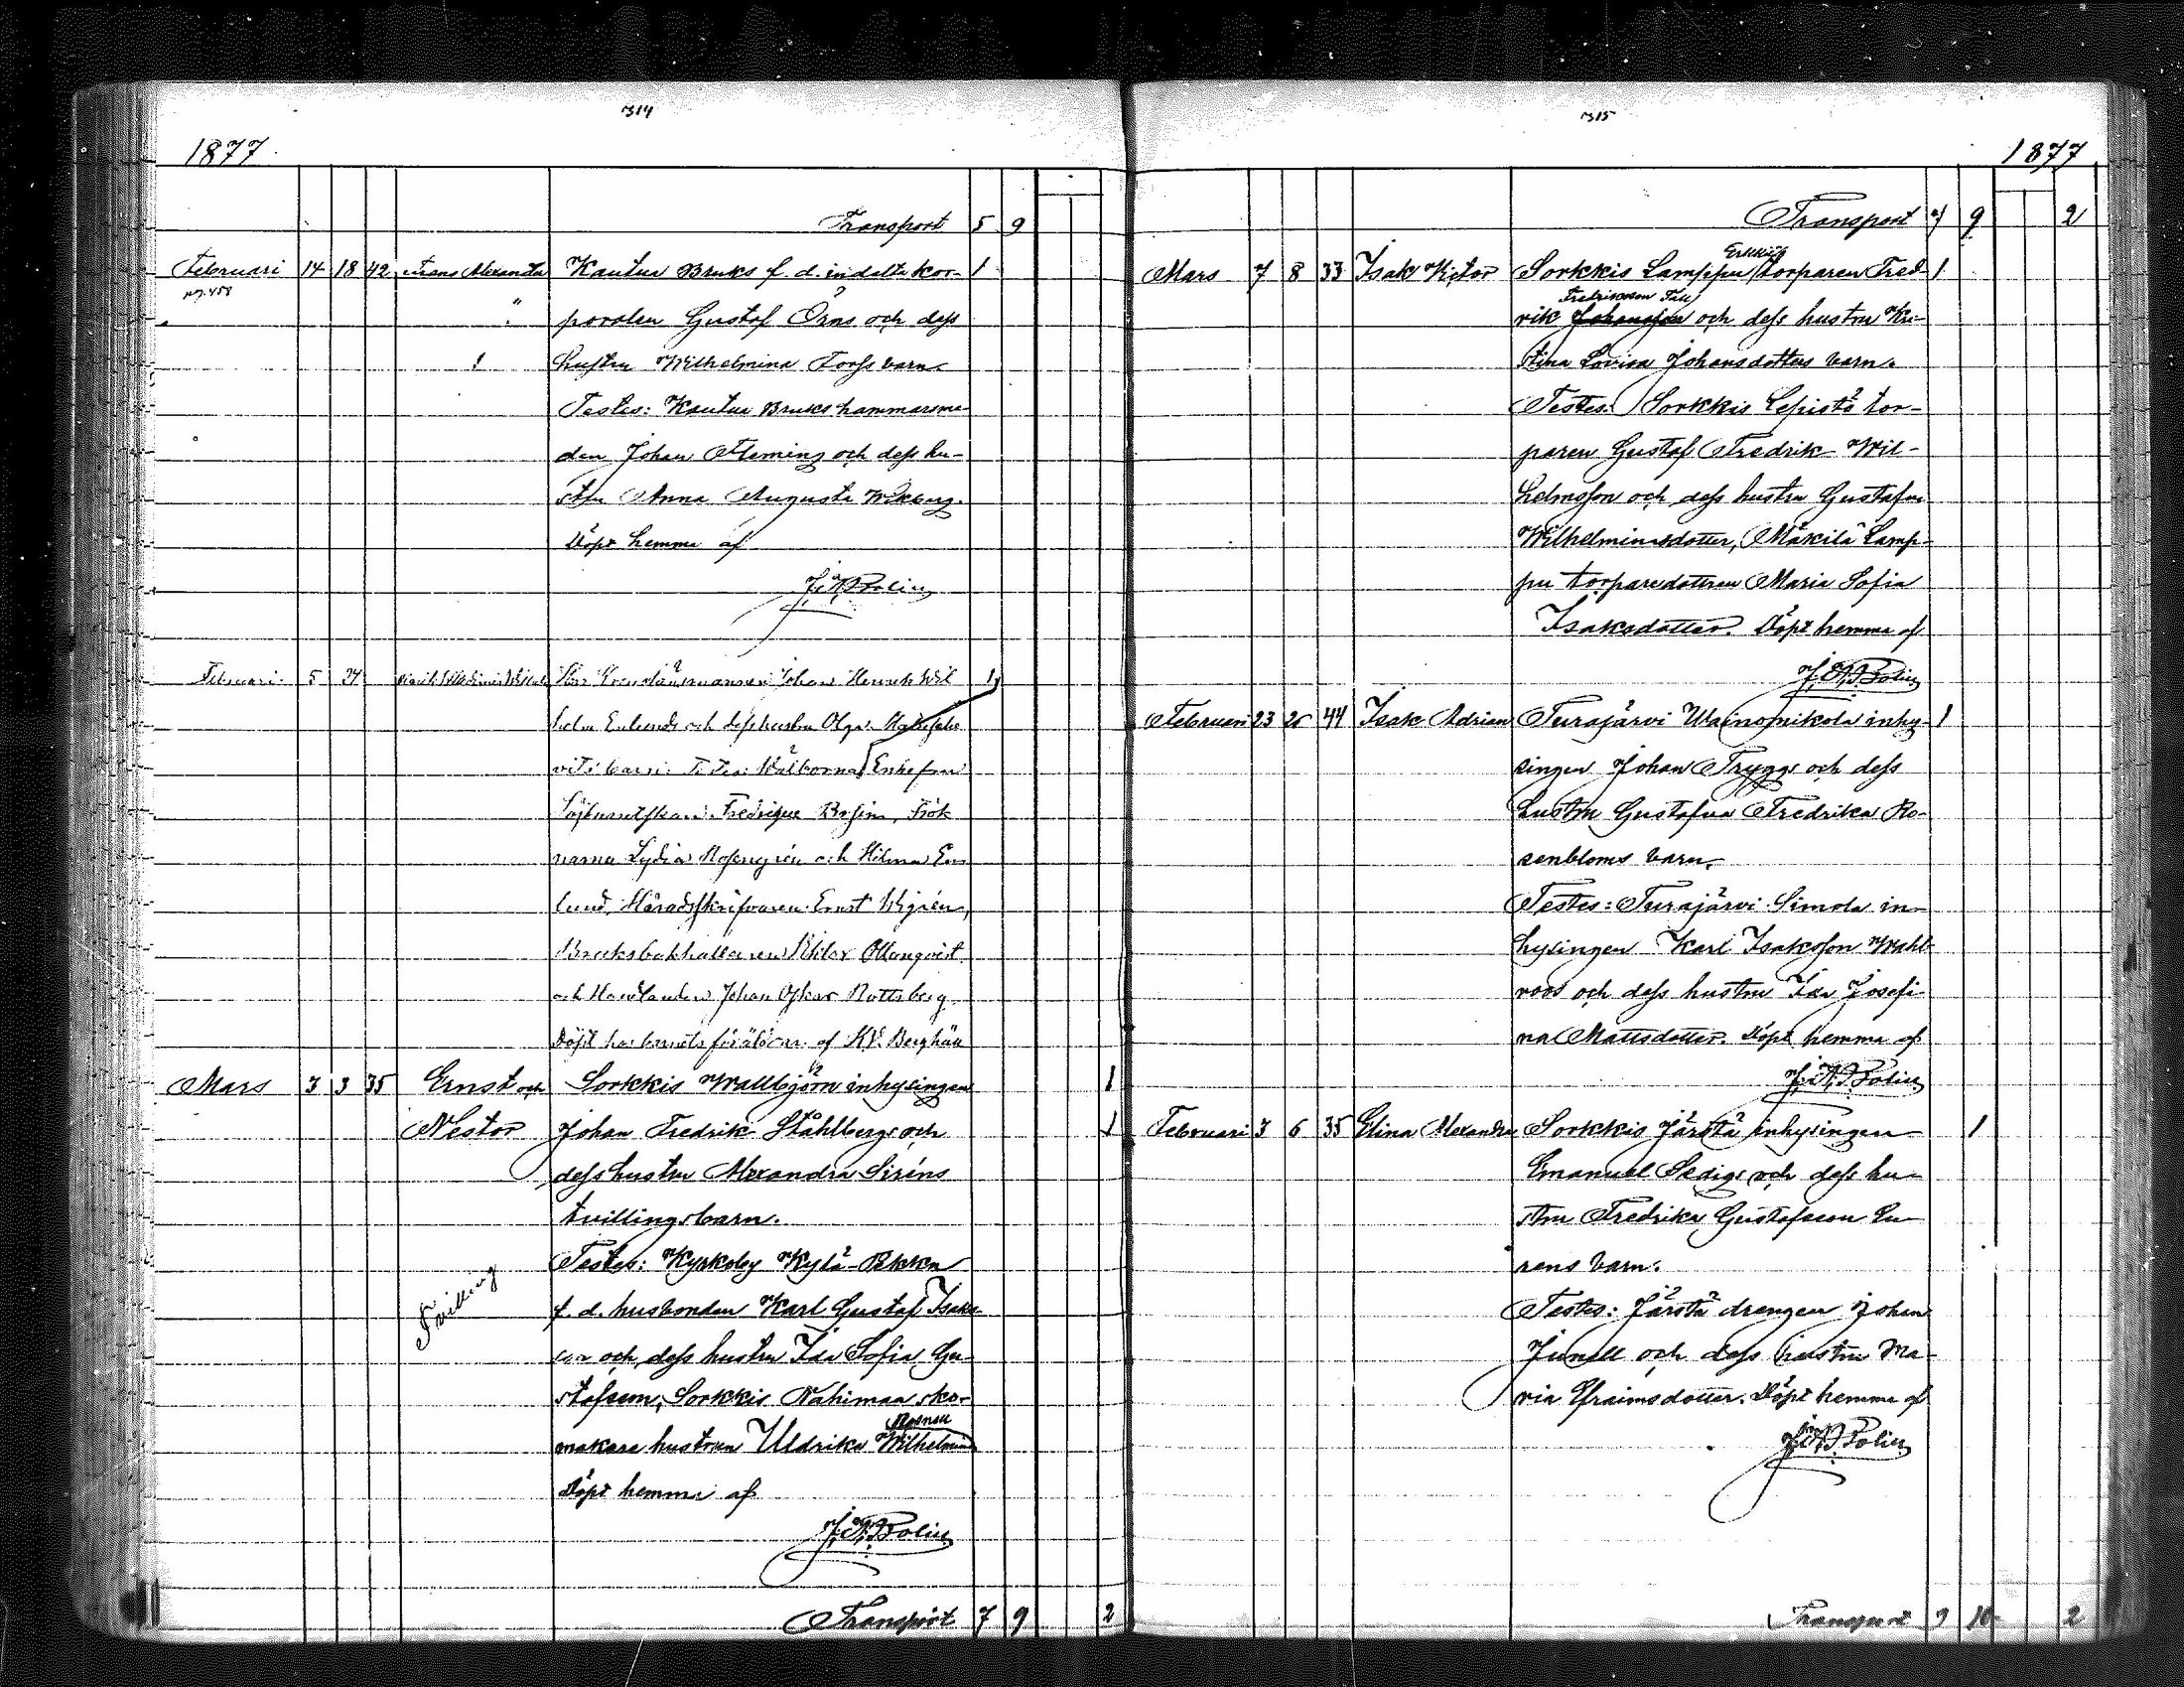 314
1877
Transport 5 9
Februari 14 18 42 Frans Alexander Kautua Bruks f. d. indelta kor- 1
pag. 458
poralen Gustaf Örns och dess
hustru Wilhelmina Forss barn.
Testes: Kautua Bruks hammarsme-
den Johan Fleming och dess hu-
stru Anna Augusta Wikberg.
Döpt hemma af
J. A. Polin
Februari 5 24 Johan Henrik Wil- 1
helm Enlunds och dess hustru Olga
Enkefru
Fredrique Frök-
narna Lydia Rosengrén och Hilma En-
lund, Häradsskrifvaren Ernst Wigrén,
Bruksbokhållaren
och Johan Oskar Rottsberg.
Döpt hos barnets föräldrar af K. V. Berghäll
Mars 3 3 35 Ernst och Sorkkis Wallbjörn inhysingen 1
Nestor Johan Fredrik Ståhlbergs och 1
dess hustru Alexandra Siréns
tvillingsbarn.
Testes: Kyrkoby Kylä-Pekka
Tvilling f. d. husbonden Karl Gustaf Isaks-
son och dess hustru Ida Sofia Gu-
stafsson, Sorkkis Nahimaa sko-
Rosnell
makare hustrun Uldrika Wilhelmina
Döpt hemma af
J. A. Polin
Transport 7 9 2
315
1877
Transport 7 9 2
Erkkilä
Mars 7 8 33 Isak Victor Sorkkis Lamppu torparen Fred- 1
Fredriksson Fall
rik Johansson och dess hustru Kri-
stina Lovisa Johansdotters barn.
Testes: Sorkkis Lepistö tor-
paren Gustaf Fredrik Wil-
helmsson och dess hustru Gustafva
Wilhelminasdotter, Mäkilä Lamp-
pu torparedottren Maria Sofia
Isaksdotter. Döpt hemma af
J. A. Polin
Februari 23 25 44 Isak Adrian Turajärvi Uainomikola inhy- 1
singen Johan Tryggs och dess
hustru Gustafva Fredrika Ro-
senbloms barn.
Testes: Turajärvi Simola in-
hysingen Karl Isaksson Wahl-
roos och dess hustru Ida Josefi-
na Mattsdotter. Döpt hemma af
J. A. Polin
Februari 3 6 35 Elina Alexandra Sorkkis Järstä inhysingen 1
Emanuel Skedigs och dess hu-
stru Fredrika Gustafsson Lu-
rens barn.
Testes: Järstä drengen Johan
Junell och dess hustru Ma-
ria Efraimsdotter. Döpt hemma af
J. A. Polin
Transport 9 10 2